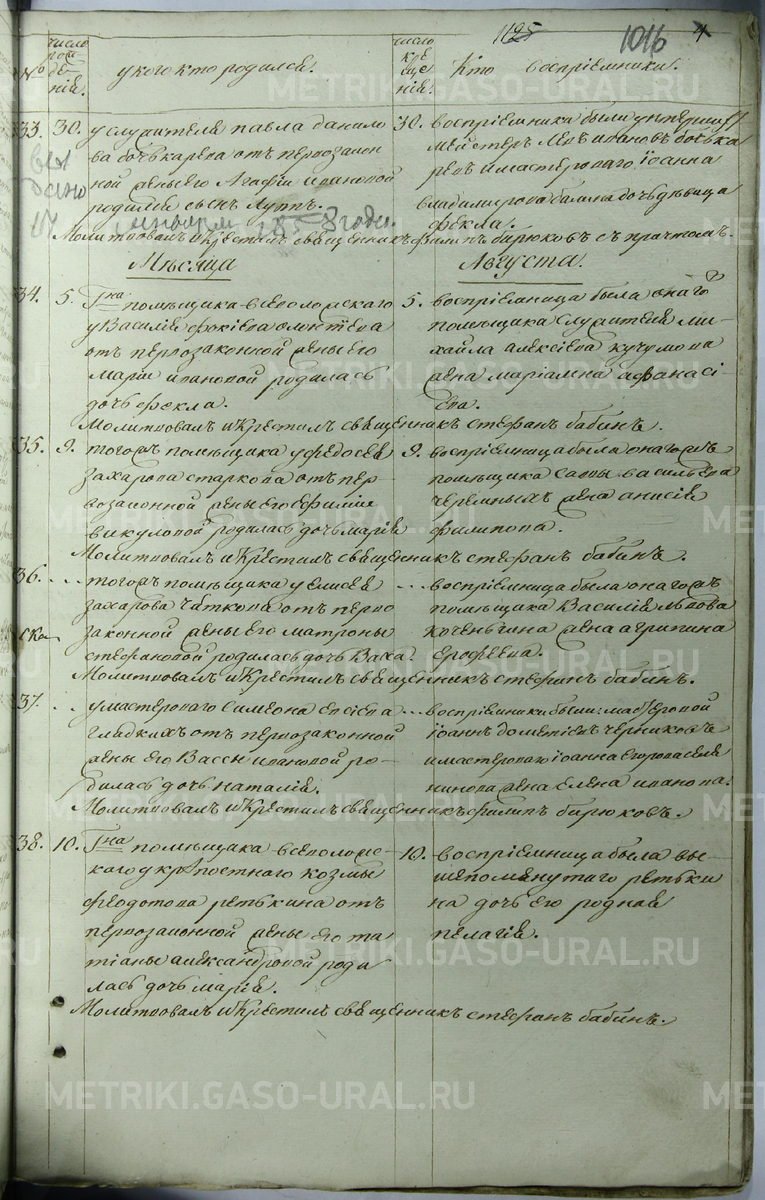 1125 1016 4
№ число рождения. у кого кто родился. число крещения. Кто восприемники.
33. 30. у служителя павла данило
ва бочькарева отъ первозакон
ной жены его Агафии ивановой
родился сынъ
30. восприемники были унтершихт
мейстеръ левъ ивановъ бочька
ревъ и мастероваго Iоанна
владимирова балина дочь девица
Фекла.
выдано
Молитвовалъ и крестилъ священникъ филипъ бирюковъ съ причтомъ.
Месяца Августа.
34. 5. Гна помещика всеволожскаго
у Василия фокиева
отъ первозаконной жены его
Марии ивановой родилась
дочь фекла.
5. восприемница была онаго
помещика служителя ми
хайла алексиева кучумова
жена мариамна афанаси
ева.
Молитвовалъ и крестилъ священникъ стефанъ бабинъ.
35. 9. тогожъ помещика у федосея
захарова старкова отъ пер
возаконной жены его ефимии
викуловой родилась дочь мария
9. восприемница была онагожъ
помещика саввы васильева
черемныхъ жена анисия
филипова.
Молитвовалъ и крестилъ священникъ стефанъ бабинъ.
36. .. тогожъ помещика у елисея
захарова отъ перво
законной жены его матроны
стефановой родилась дочь Васса.
... восприемница была онагожъ
помещика Василия львова
жена агрипина
ерофеева.
Молитвовалъ и крестилъ священникъ стефанъ бабинъ.
37. .. у мастероваго Симеона евсиева
гладкихъ отъ первозаконной
жены его Вассы ивановой ро-
дилась дочь наталия.
... восприемники были: мастеровой
iоаннъ дометиевъ черниковъ
и мастероваго iоанна егорова селя
нинова жена елена иванова.
Молитвовалъ и крестилъ священникъ филипъ бирюковъ.
38. 10. Гна помещика всеволожс-
каго у крепостнаго козмы
феодотова ретькина отъ
первозаконной жены его та
тианы александровой роди
лась дочь мария.
10. восприемница была вы-
шепомянутаго ретьки
на дочь его родная
пелагия.
Молитвовалъ и крестилъ священникъ стефанъ бабинъ.
METRIKI.GASO-URAL.RU